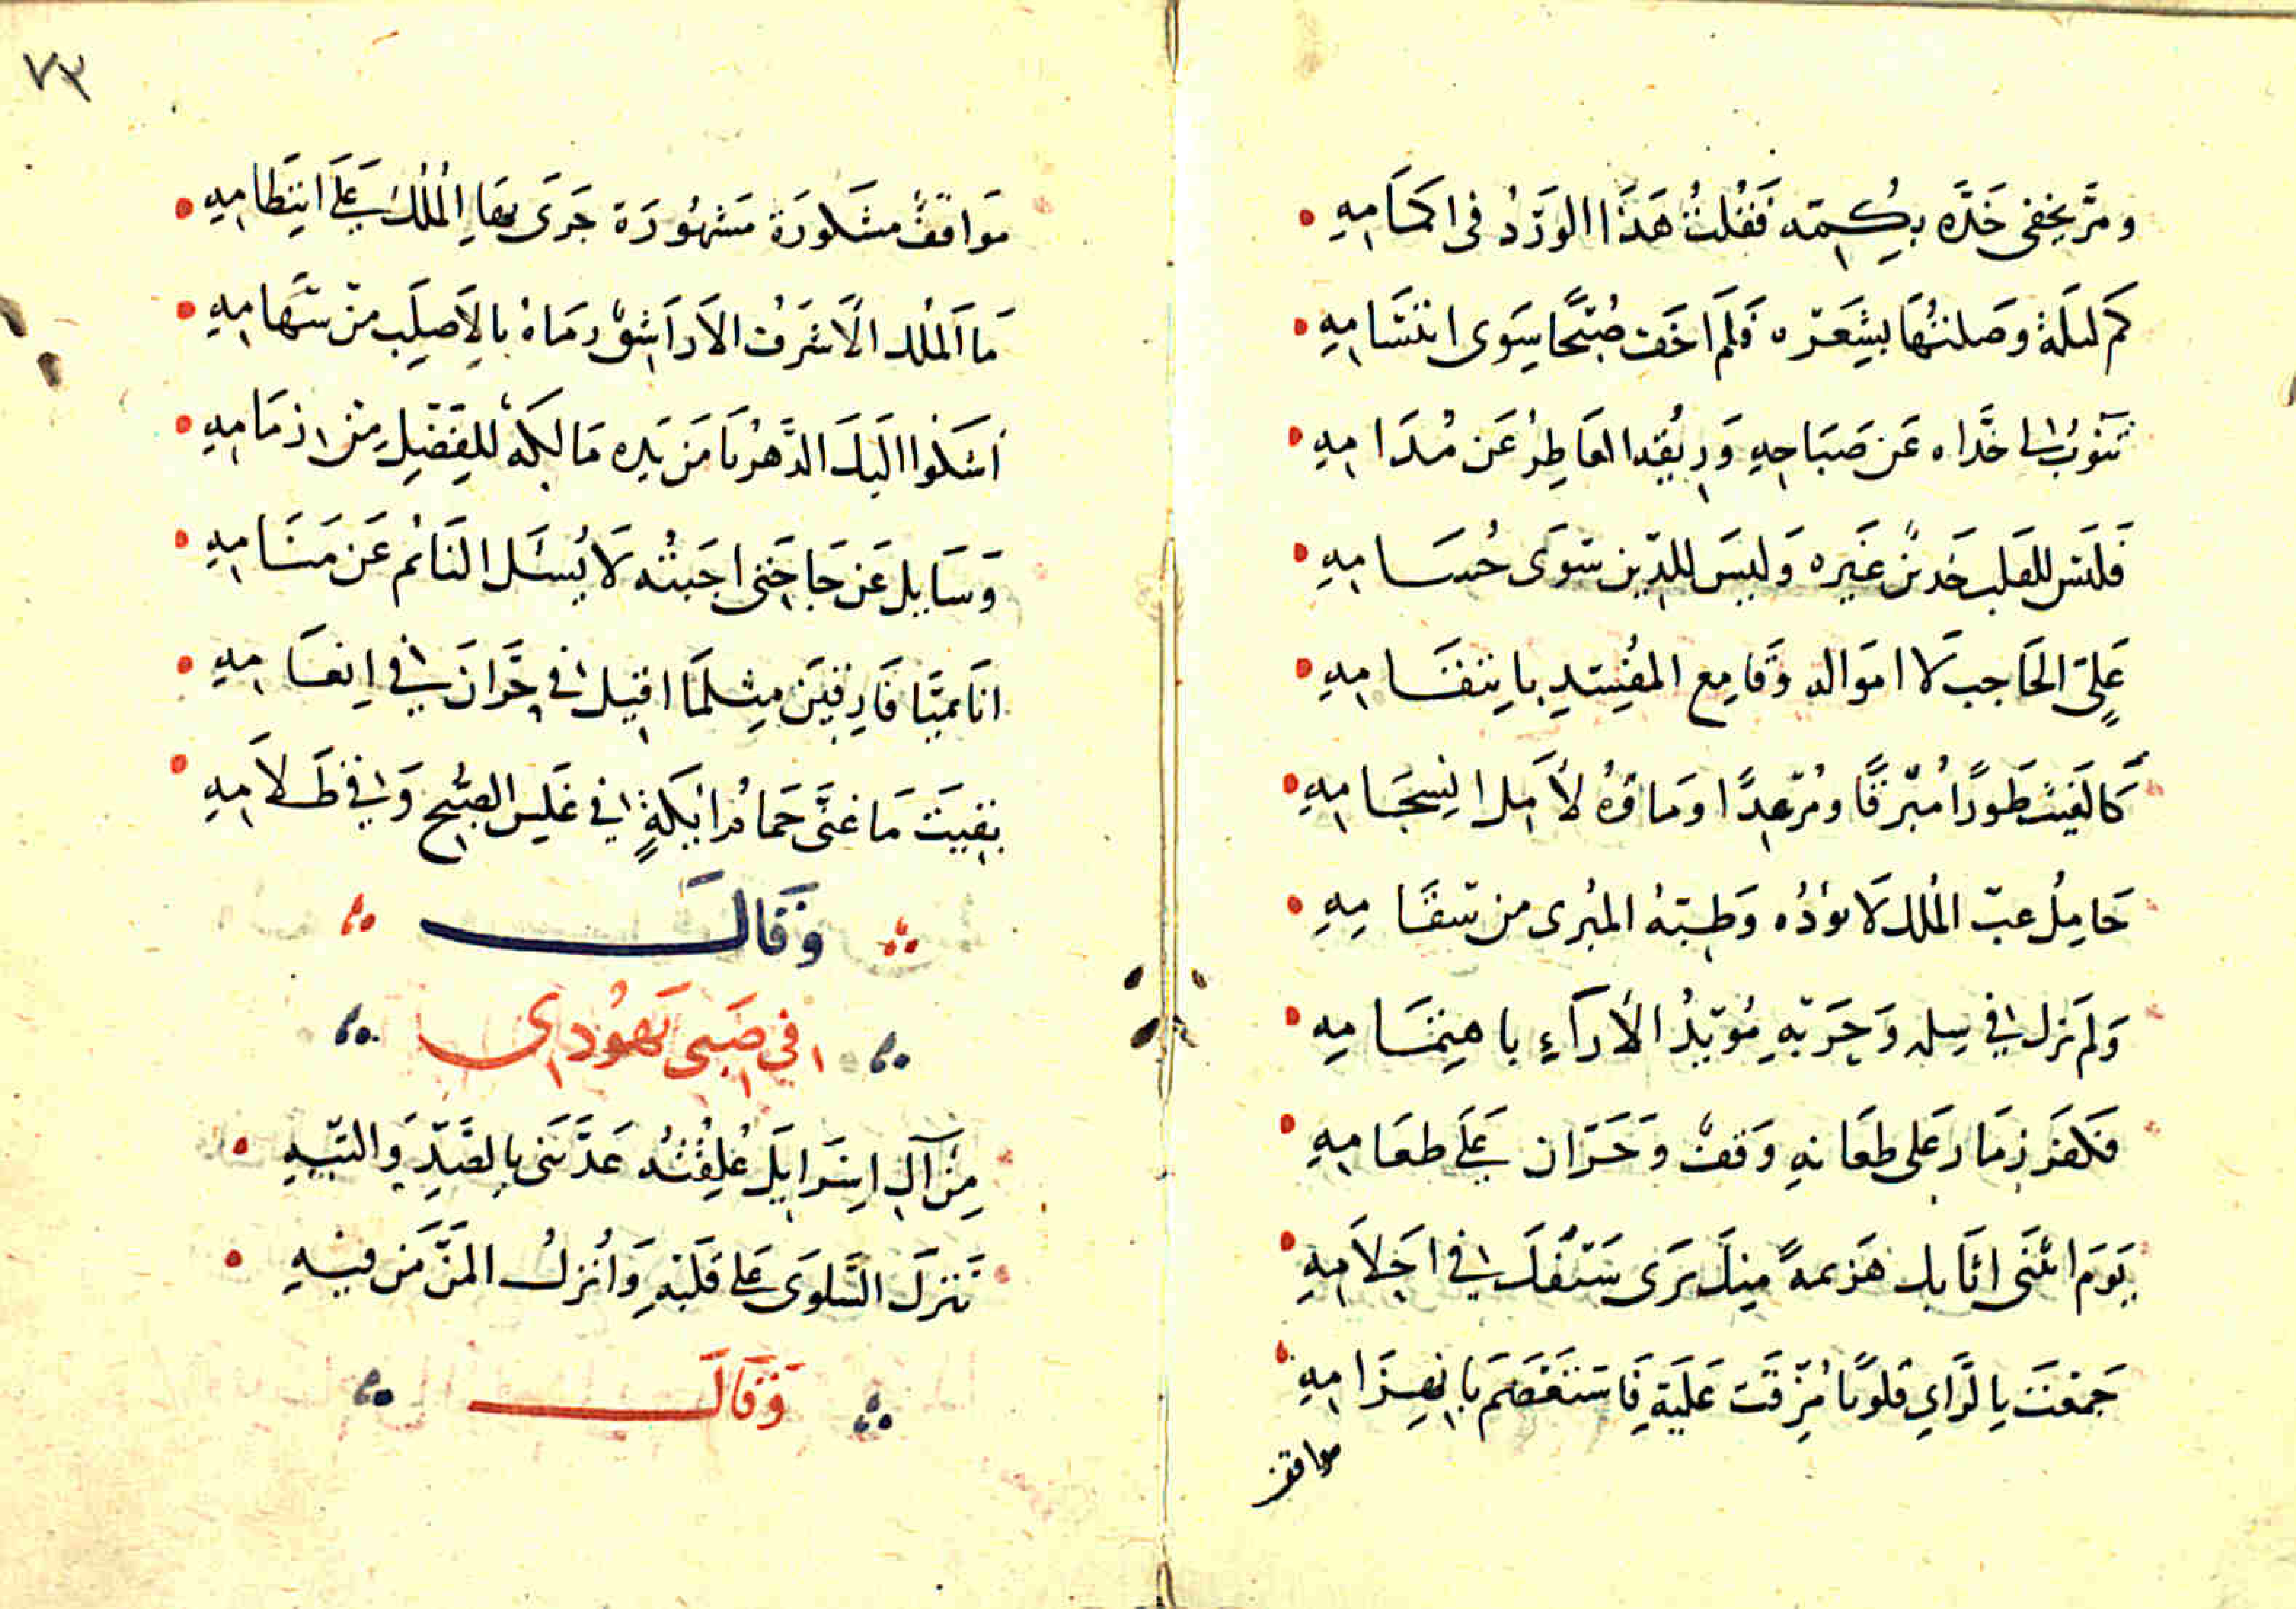 ومَرَّ يخفى خَدَّه بِكُمِّه فَقُلتُ هَذَا الوَرْدُ فى اكمَامِهِ
كَم ليلَةٍ وصَلتُهَا بِشَعرِه فَلَم اخَف صُبْحًا سِوَى ابتسَامِهِ
تنوبُ لى خدَّاه عَن صَبَاحِهِ وَرِيقُه العَاطِرُ عَن مُدَامِهِ
فَليَس للقلب خَدينٌ غَيره وَليسَ للدِّين سَوَى حُسَامِهِ
عَلِىّ الحَاجب لا امواله وَقامِع المفسِدِ بانتقَامِهِ
كالغَيث طَورًا مُبْرِقًا ومُرْعِدًا وماؤهُ لآمل انسِجَامِهِ
حَامِلُ عبّ المُلك لا يؤدُه وَطِبّهُ المُبْرى من سَقَامِهِ
وَلَم تزل فى سِلمه وَحَربِهِ مُؤيّدُ الأرآءِ باهتمَامِهِ
فكم ذِمَار عَلى طعَانهِ وَقفٌ وَحَرّان عَلَى طعَامِهِ
يَومَ انثَنَى اتابك هَزيمَةً مِنكَ يَرَى سَيْفَكَ فى احَلامِهِ
جَمعْتَ بالرَّاىِ قلوبًا مُزّقَت عَليَهِ فَاستَعَصَم بانهزَامِهِ
مواقف
٧٣
مَوَاقفٌ مشكورَة مَشهُورَة جَرَى بهَا المُلكُ عَلَى انتِظَامِهِ
مَا المُلك الأشرَفُ الا راشِقٌ رمَاهُ بالصَليَبِ من سهَامِهِ
اَشكُوا اليَكَ الدَّهرَ يَا مَن يَده مَالِكَةٌ للفَضْلِ من زمَامِهِ
وَسَايل عَن حَاجَتى اجَبتُه لا يُسئَل النَائم عَن مَنَامِهِ
بَقِيتَ مَا غنَّى حَمَامُ اَيكَةٍ فى غَلَسِ الصُبْح وَفى ظَلامِهِ
وَقَالَ
فى صَبى يَهُودِى
مِن آلِ اسِرَايلَ عُلِقْتُه عَذَّبَنى بالصَّدِّ وَالتيهِ
تَنزَلَ السَّلوَى عَلى قَلبهِ وَاُنزِلُ المَنّ مَن فيهِ
وَقَالَ